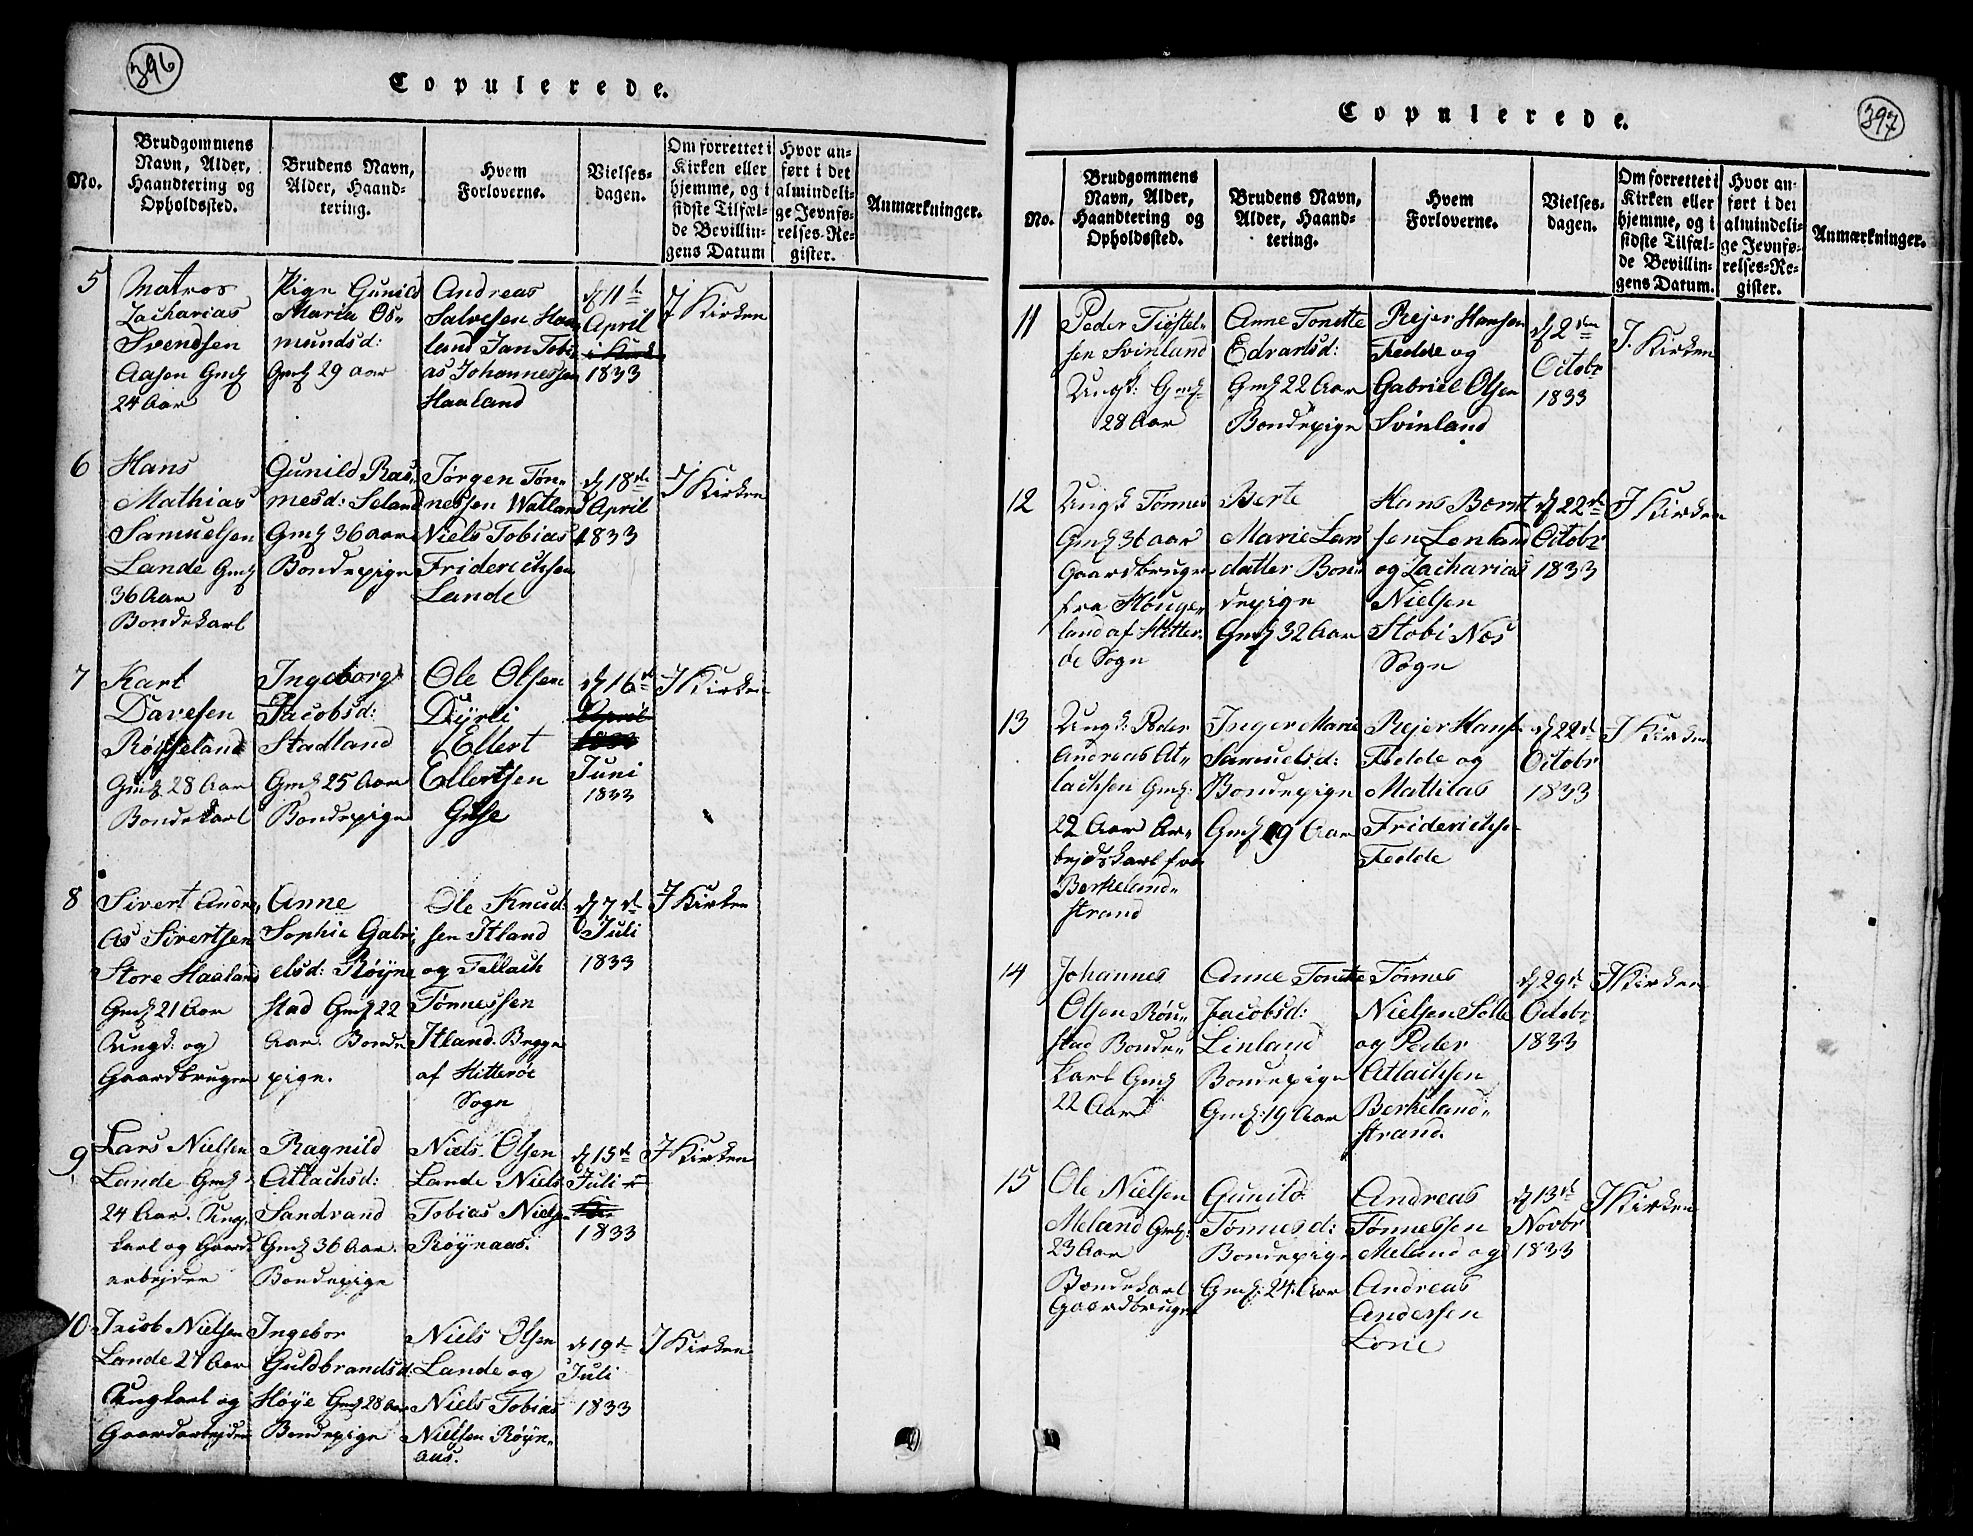 396
Copulerede.
No.
Brudgommens
Navn, Alder,
Haandtering og
Opholdssted.
Brudens Navn,
Alder, Haand-
tering.
Hvem
Forloverne.
Vielses-
dagen.
Om forrettet i
Kirken eller
hjemme, og i
sidste Tilfæl-
de Bevillin-
gens Datum
Hvor an-
ført i det
almindeli-
ge Jevnfø-
relses-Re-
gister.
Anmærkninger.
5
Matros
Zacharias
Svendsen
Aasen Gmf
24 Aar
Pige Gunild
Maria Os-
mundsd:
Gmf 29 aar
Andreas
Salvesen Haa
land Jan Tobi
as Johannessen
Haaland
d 11te
April
1833
I Kirken
6
Hans
Mathias
Samuelsen
Lande Gmf
36 Aar
Bondekarl
Gunild Ras-
mesd: Seland
Gmf 36 aar
Bondepige
Jørgen Tøn-
nessen Watland
Niels Tobias
Friderichsen
Lande
d 18de
April
1833
I Kirken
7
Karl
Davesen
Røysseland
Gmf. 28 Aar
Bondekarl
Ingeborg
Jacobsd:
Stadland
Gmf 25 Aar
Bondepige
Ole Olsen
Dyrli
Ellert
Ellertsen
d 16de
April
Juni
1833
I Kirken
8
Sivert Andre-
as Sivertsen
Store Haaland
Gmf 21 Aar
Ungk: og
Gaardbruger
Anne
Sophie Gabri
elsd: Røyne
stad Gmf 22
Aar. Bonde
pige.
Ole Knud
sen Itland
og Tellach
Tønnessen
Itland. Begge
af Hitterøe
Sogn
d 7de
Juli
1833
I Kirken
9
Lars Nielsen
Lande Gmf
24 Aar. Ung-
karl og Gaard-
arbejder
Ragnild
Atlachsd:
Sandvand
Gmf 36 Aar.
Bondepige
Niels Olsen
Lande Niels
Tobias Nielsen
Røynaas.
d 15de
Juli
1833
I Kirken
10
Jacob Nielsen
Lande 27 Aar
Ungkarl og
Gaardarbejder
Ingebor
Guldbrandsd:
Høye Gmf 28 Aar
Bondepige
Niels Olsen
Lande og
Niels Tobias
Nielsen Røyn-
aas.
d 19de
Juli
1833
I Kirken
397
Copulerede.
No.
Brudgommens
Navn, Alder,
Haandtering og
Opholdssted.
Brudens Navn,
Alder, Haand-
tering.
Hvem
Forloverne.
Vielses-
dagen.
Om forrettet i
Kirken eller
hjemme, og i
sidste Tilfæl-
de Bevillin-
gens Datum.
Hvor an-
ført i det
almindeli-
ge Jevnfø-
relses-Re-
gister.
Anmærkninger.
11
Peder Tiøstel-
sen Svinland
Ungk: Gmf
28 Aar
Anne Tonette
Edvartsd:
Gmf 22 Aar
Bondepige
Rejer Hansen
Fedde og
Gabriel Olsen
Svinland
d 2den
Octobr
1833
I Kirken
12
Ungk Tønnes
Gmf 36 aar
Gaardbruger
fra Houge-
land af Hitter-
øe Sogn
Berte
Marie Lars
datter Bon-
depige
Gmf 32 Aar
Hans Bernt
sen Lenland
og Zacharias
Nielsen
Stobi Nes
Sogn
d 22de
Octobr
1833
I Kirken
13
Ungk: Peder
Andreas At-
lachsen Gmf:
22 Aar Ar-
bejdskarl fra
Berkeland-
strand
Inger Marie
Samuelsd:
Bondepige
Gmf 19 Aar
Rejer Hanse
Fedde og
Mathias
Friderichse-
Fedde
d 22de
Octobr
1833
I Kirken
14
Johannes
Olsen Røn-
stad Bonde-
karl Gmf
22 Aar
Anne Tonette
Jacobsd:
Linland
Bondepige
Gmf: 19 Aar
Tønnes
Nielsen Sølle
og Peder
Atlachsen
Berkeland-
strand.
d 29de
Octobr
1833
I Kirken
15
Ole Nielsen
Meland Gmf:
23 Aar
Bondekarl
Gaardbruger
Gunild
Tønnesd:
Bondepige
Gmf: 24 Aar
Andreas
Tønnessen
Meland og
Andreas
Andersen
Lorie
d 13de
Novbr
1833
I Kirken